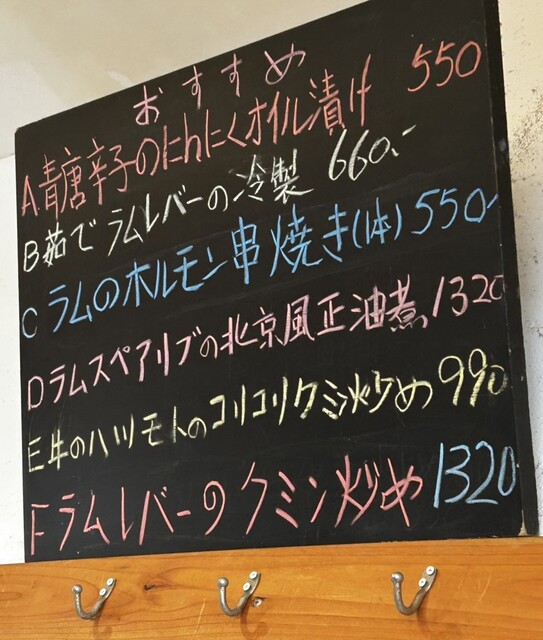 おすすめ
A青唐辛子のにんにくオイル漬け 550
B茹でラムレバーの冷製 660.-
Cラムのホルモン串焼き(1本)550-
Dラムスペアリブの北京風正油煮 1320
E牛のハツモトのコリコリクミン炒め 990
Fラムレバーのクミン炒め 1320